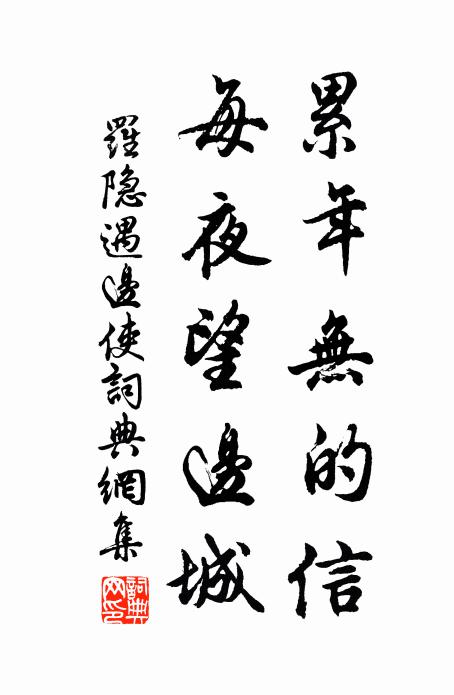 累年無的信
每夜望邊城
羅隐遇邊使詞典網集
詞典網印